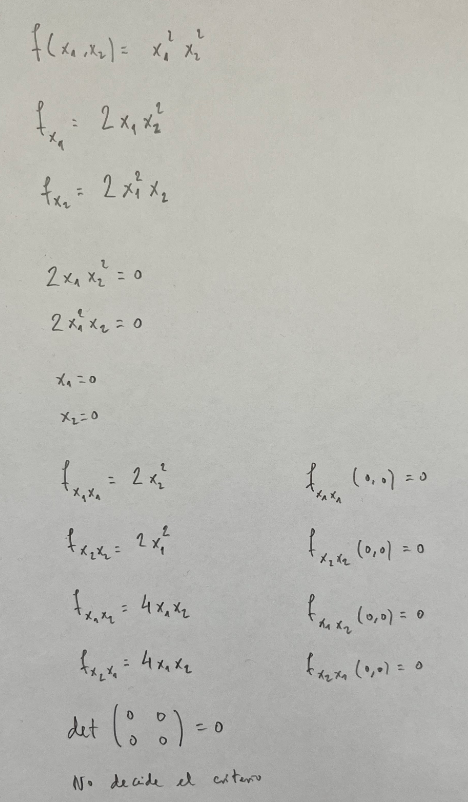 f(x₁,x₂) = x₁² x₂²
f_x₁ = 2 x₁ x₂²
f_x₂ = 2 x₁² x₂
2x₁ x₂² = 0
2 x₁² x₂ = 0
x₁ = 0
x₂ = 0
f_x₁x₁ = 2 x₂² f_x₁x₁ (0,0) = 0
f_x₂x₂ = 2 x₁² f_x₂x₂ (0,0) = 0
f_x₁x₂ = 4x₁x₂ f_x₁x₂ (0,0) = 0
f_x₂x₁ = 4x₁x₂ f_x₂x₁ (0,0) = 0
det (0 0
0 0) = 0
No decide el criterio